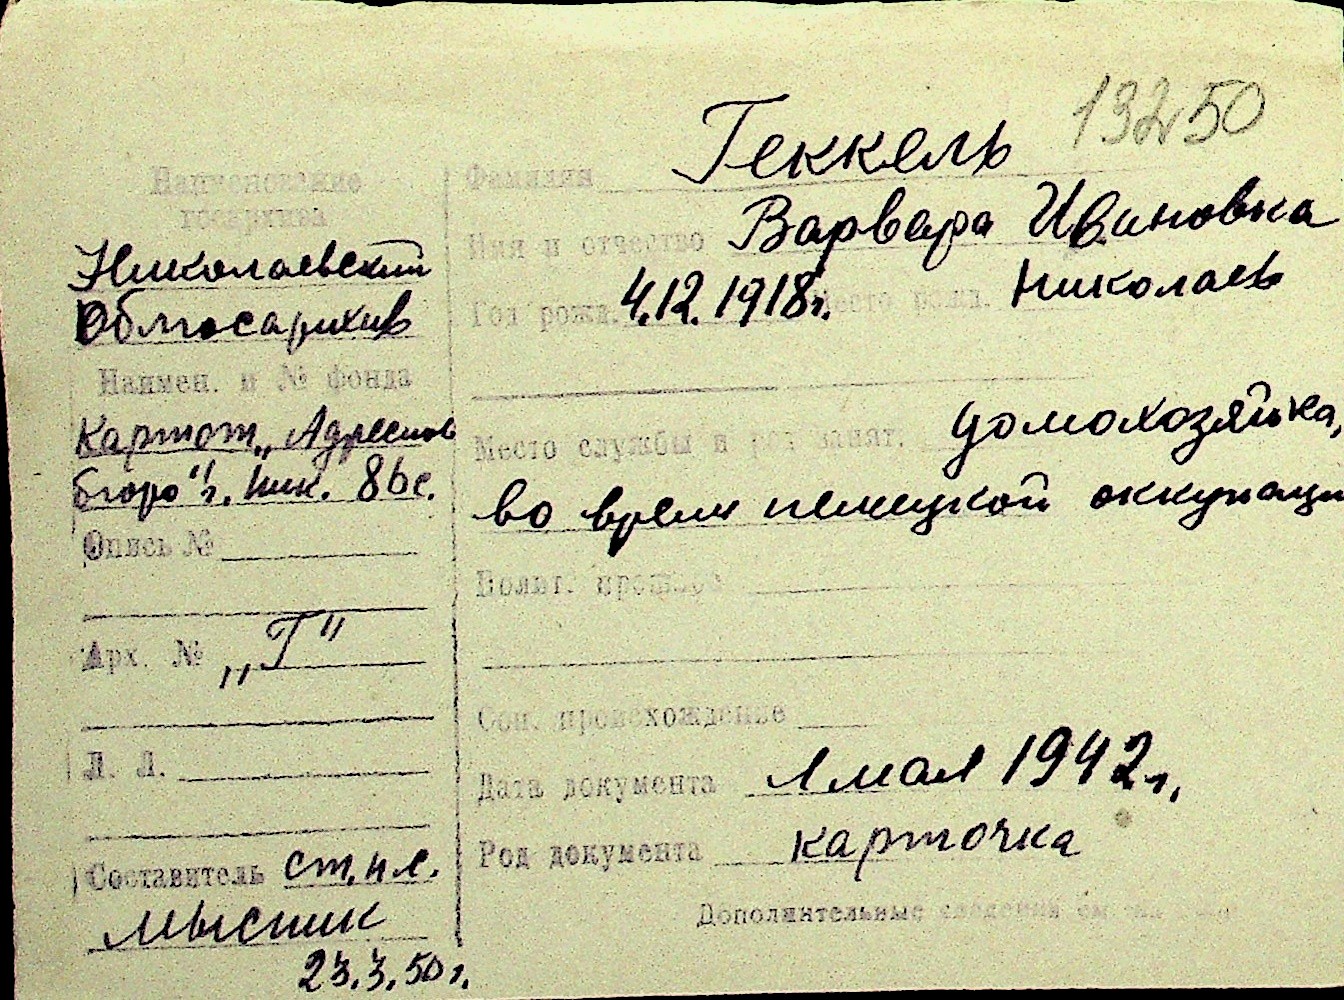 13250
Наименование
госархива
Николаевский
Облгосархив
Наимен. и № фонда
Картот. „Адресное
бюро" г. Ник.
Опись №
Арх. № „Г"
Л. Л.
Составитель ст. н.с.
Мысник
23.3.50 г.
Фамилия Геккель
Имя и отчество Варвара Ивановна
Год рожд. 4.12.1918 г. Место рожд. Николаев
Место службы и род занят. домохозяйка,
во время немецкой оккупации
Полит. прошлое
Соц. происхождение
Дата документа 1 мая 1942 г.
Род документа карточка
Дополнительные сведения см. на